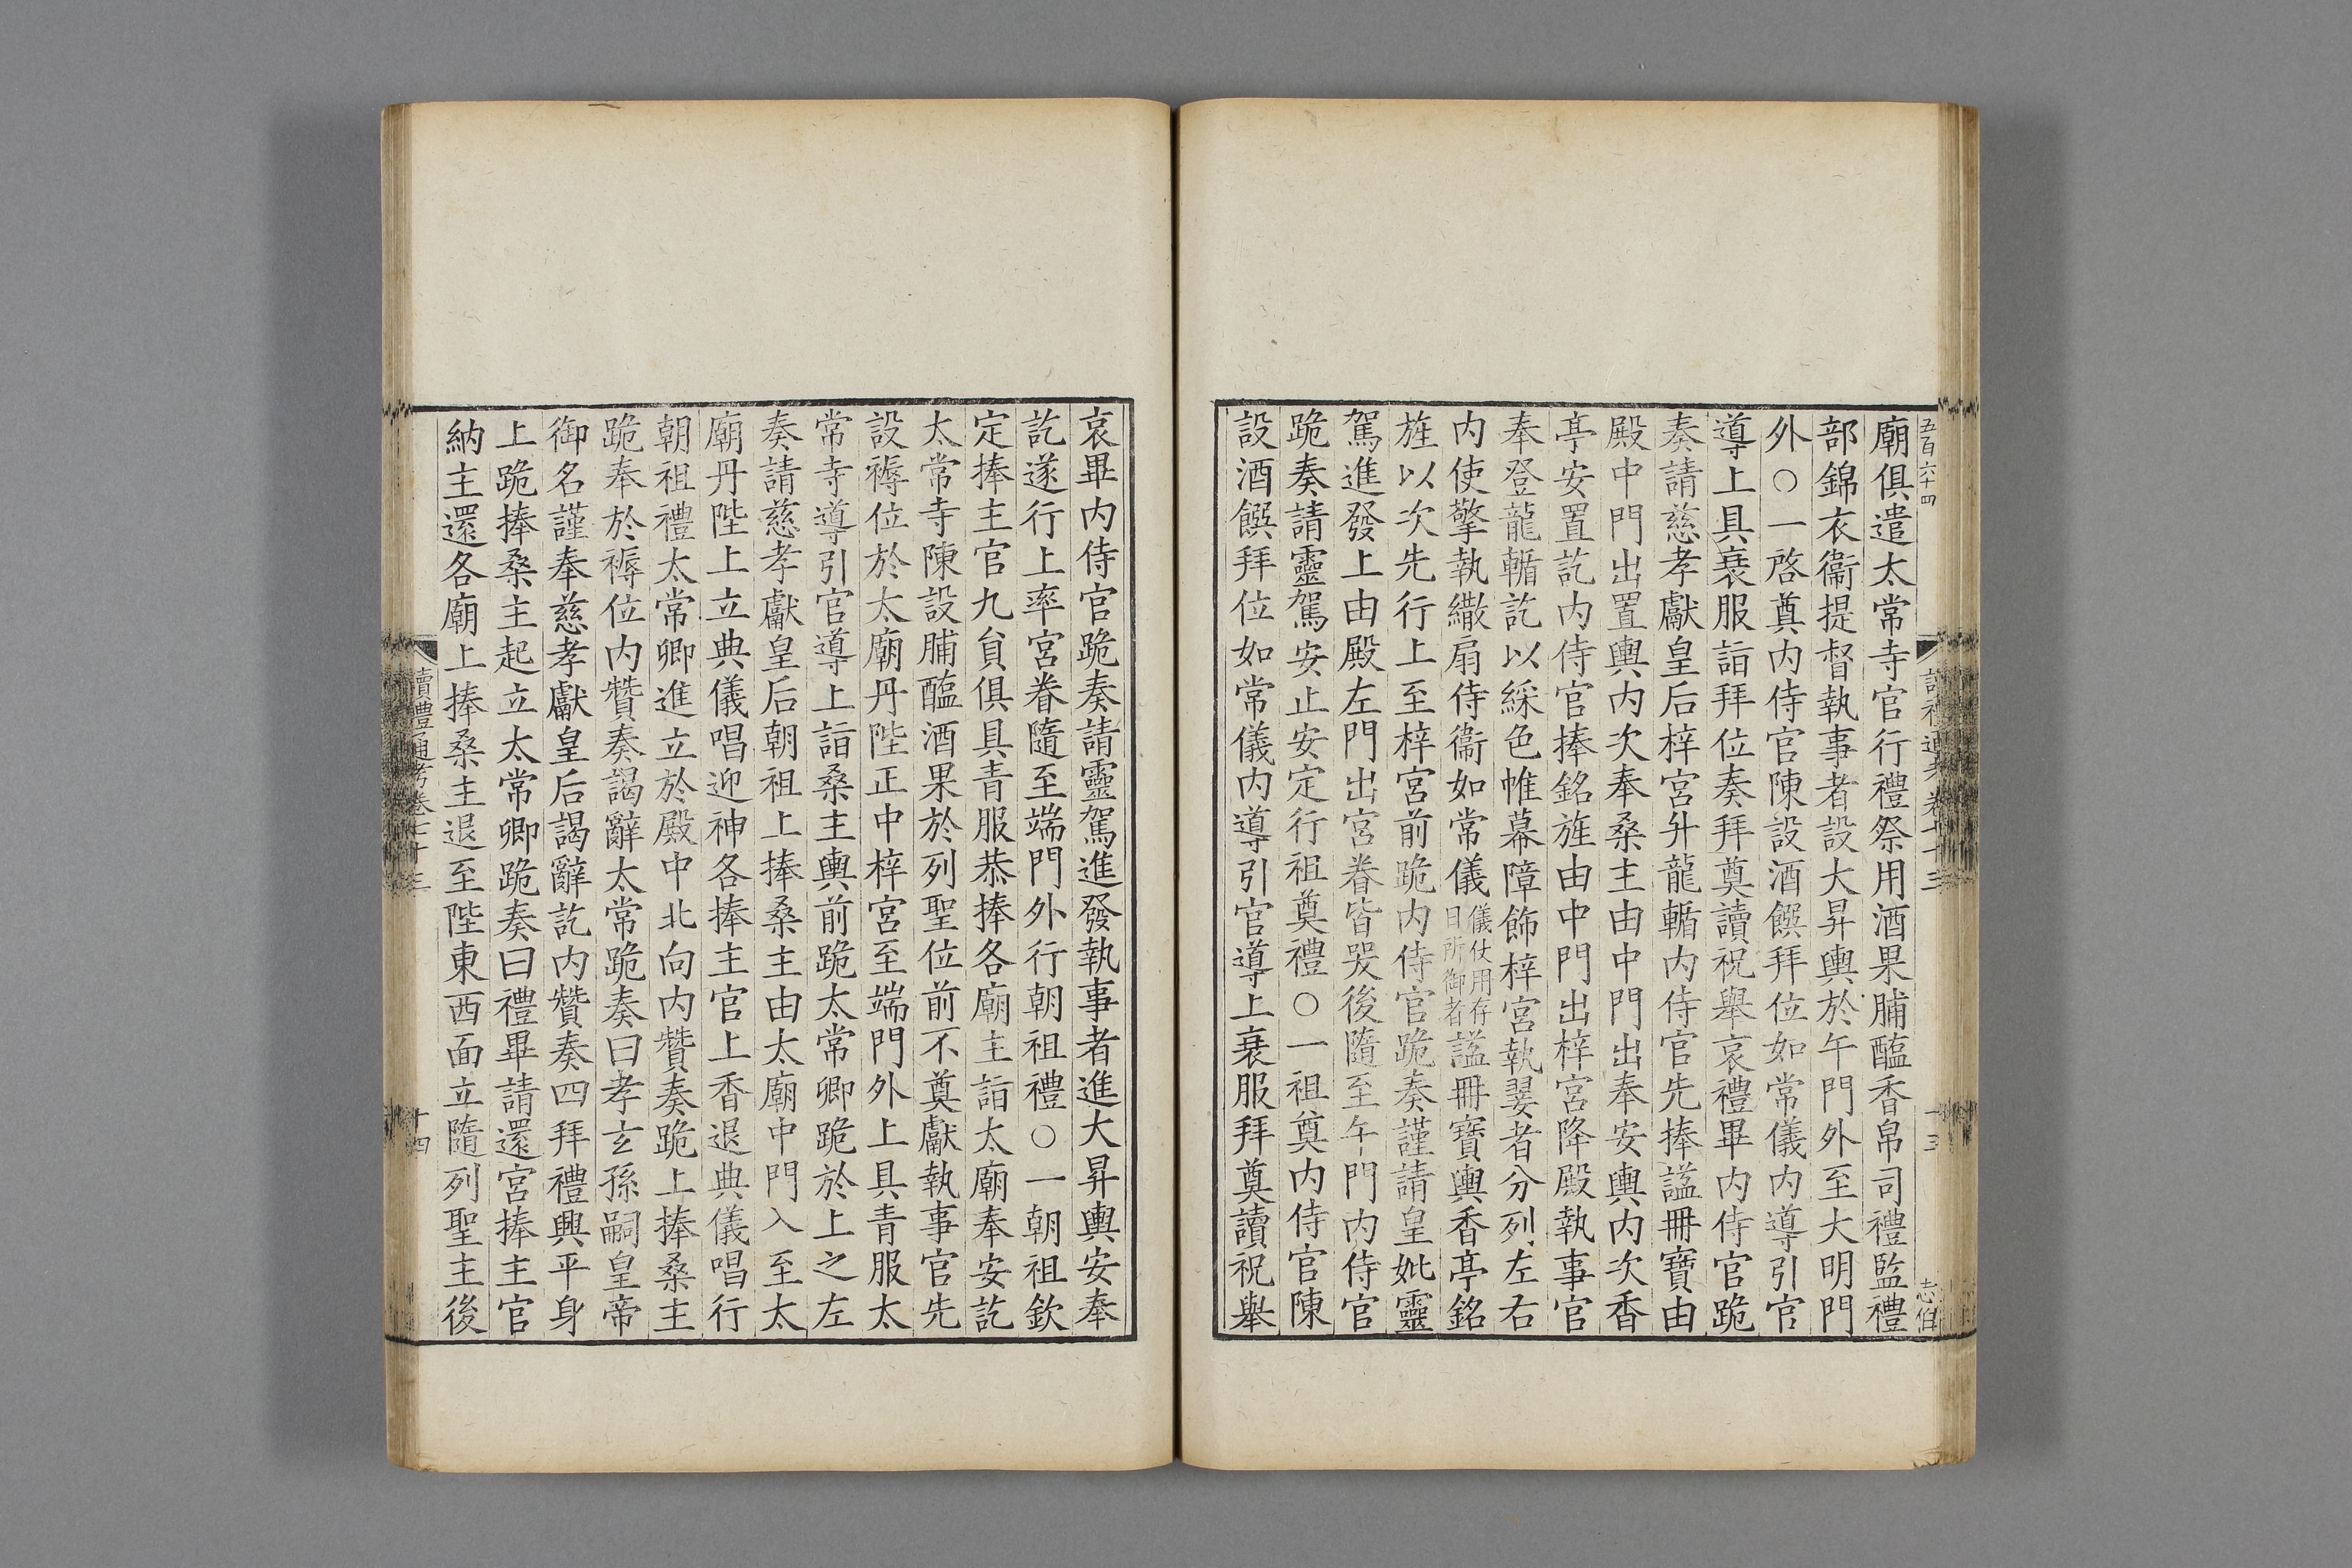 五百六十四
廟俱遣太常寺官行禮祭用酒果脯醢香帛司禮監禮
部錦衣衞提督執事者設大昇輿於午門外至大明門
外○一啓奠内侍官陳設酒饌拜位如常儀内導引官
導上具衰服詣拜位奏拜奠讀祝舉哀禮畢内侍官跪
奏請慈孝獻皇后梓宮升龍輴内侍官先捧謚冊寶由
殿中門出置輿内次奉桑主由中門出奉安輿内次香
亭安置訖内侍官捧銘旌由中門出梓宮降殿執事官
奉登龍輴訖以綵色帷幕障飾梓宮執翣者分列左右
内使擎執繖扇侍衞如常儀儀仗用存日所御者謚冊寶輿香亭銘
旌以次先行上至梓宮前跪内侍官跪奏謹請皇妣靈
駕進發上由殿左門出宮眷皆哭後隨至午門内侍官
跪奏請靈駕安止安定行祖奠禮○一祖奠内侍官陳
設酒饌拜位如常儀内導引官導上衰服拜奠讀祝舉
哀畢内侍官跪奏請靈駕進發執事者進大昇輿安奉
訖遂行上率宮眷隨至端門外行朝祖禮○一朝祖欽
定捧主官九貟俱具青服恭捧各廟主詣太廟奉安訖
太常寺陳設脯醢酒果於列聖位前不奠獻執事官先
設褥位於太廟丹陛正中梓宮至端門外上具青服太
常寺導引官導上詣桑主輿前跪太常卿跪於上之左
奏請慈孝獻皇后朝祖上捧桑主由太廟中門入至太
廟丹陛上立典儀唱迎神各捧主官上香退典儀唱行
朝祖禮太常卿進立於殿中北向内贊奏跪上捧桑主
跪奉於褥位内贊奏謁辭太常跪奏曰孝玄孫嗣皇帝
御名謹奉慈孝獻皇后謁辭訖内贊奏四拜禮興平身
上跪捧桑主起立太常卿跪奏曰禮畢請還宮捧主官
納主還各廟上捧桑主退至陛東西面立隨列聖主後
讀禮通考卷七十三
十四